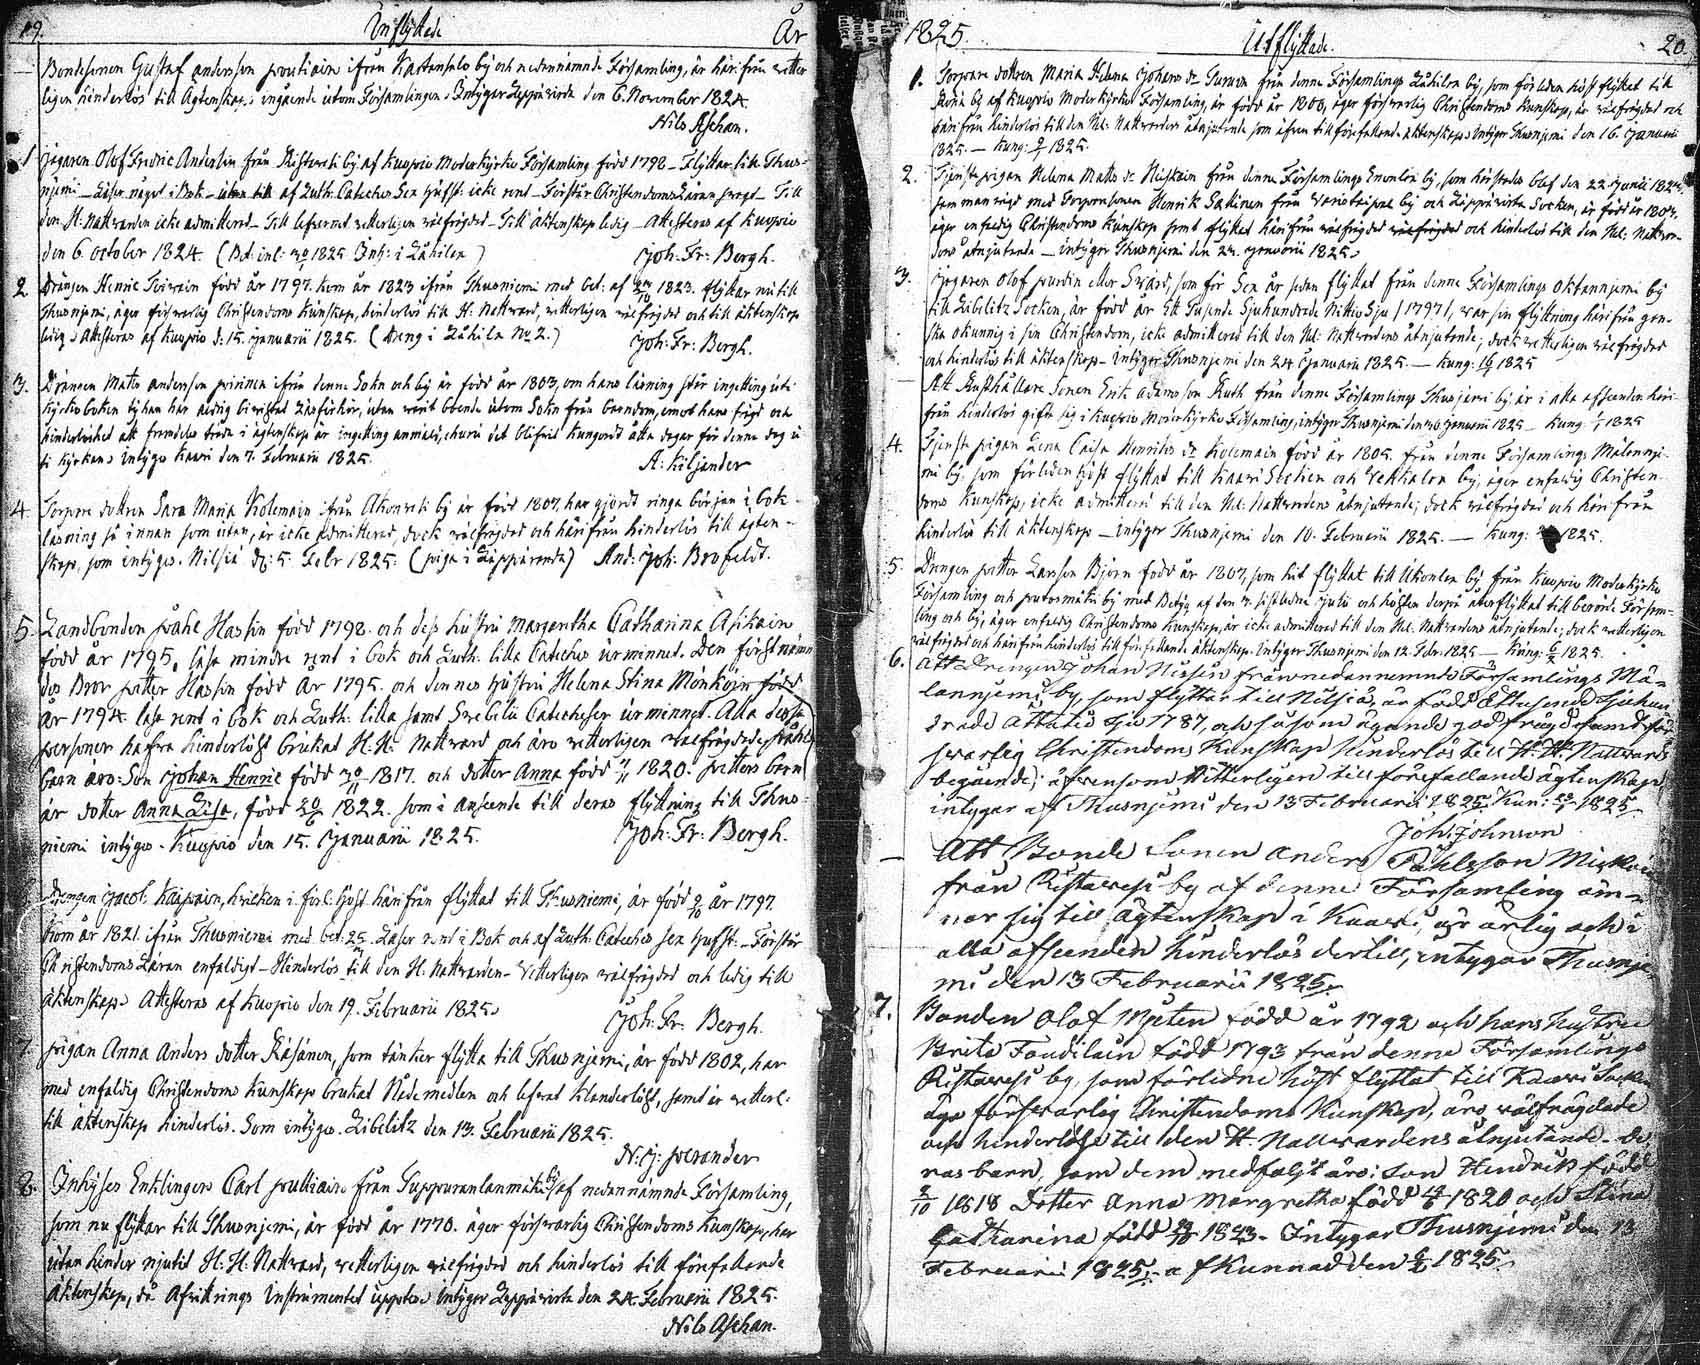 19.
Inflyttade
År
Bondesonen Gustaf Andersson ifrån by och nedannämnde Församling, är härifrån wetter-
ligen hinderlös till Ägtenskaps ingående utom Församlingen. Intygar Leppävirta den 6. November 1824.
Nils Aschan.
1 Jägaren Olof Fredric Anderlin från Risterski by af Kuopio Moderkyrko Församling född 1798 – Flyttar till Thus-
njemi – Läser något i Bok – utan till af Luth. Cateches Sex Hufst: icke rent – Förstår Christendoms Läran swagt – Till
den H. Nattwarden icke admitterad – Till lefwernet wetterligen wälfrägdad – Till äktenskap ledig – Attesteras af Kuopio
den 6. October 1824. (Bet: inl: 1825. Inh: i Lähilen)
Joh: Fr: Bergh.
2 Drängen Henric Toiwain född år 1797. kom år 1823 ifrån Thusniemi med bet: af 1823. flyttar nu till
Thusnjemi, äger förswarlig Christendoms Kunskap, hinderlös till H. Nattward, wetterligen wälfrägdad och till äktenskap
ledig. Attesteras af Kuopio d: 15. Januarii 1825. (Dräng i Lähila No 2.)
Joh: Fr: Bergh.
3. Drängen Matts Andersson ifrån denne Sokn och by är född år 1803, om hans läsning står ingetting uti
Kyrko boken ty han har aldrig läsförhör, utan warit boende utom Sokn från barndom, emot hans frägd och
hinderlöshet att framdeles träda i ägtenskap är ingetting anmält, churu det blifwit kungordt åtta dagar för denne dag u-
ti Kyrkan. Intygar Kaawi den 7. Februarii 1825.
A: Kiljander
4. Torpare dottren Sara Maria Kolemain ifrån Akonweli by är född 1807, har gjordt ringa början i bok-
läsning så innan som utan, är icke admitterad, dock wälfrägdad och härifrån hinderlös till ägten-
skap, som intygas. Nilsiä d: 5. Febr 1825. (piga i Läppäranda) And: Joh: Brofeldt.
5. Landbonden Påhl Hassin född 1798. och dess hustru Margaretha Catharina Asikain
född år 1795. läsa mindre rent i bok och Luth. lilla Cateches ur minnet. Den förstnämn
des Bror Petter Hassin född år 1795. och dennes hustru Helena Stina född
år 1794. läsa rent i bok och Luth: lilla samt Swebilii Catecheser ur minnet. Alla dessa
personer hafwa hinderlöst brukat H. H. Nattward och äro wetterligen wälfrägdade. Påhls
barn äro: Son Johan Henric född 1817. och dotter Anna född 1820. Petters barn
är dotter Anna Lisa, född 1822. som i anseende till deras flyttning till Thus-
niemi intygas. Kuopio den 15. Januarii 1825.
Joh: Fr: Bergh.
Drängen Jacob hwilken i förl: höst härifrån flyttat till Thusniemi, är född år 1797.
kom år 1821. ifrån Thusniemi med bet: Läser rent i Bok och af Luth. Cateches sex Hufst: – Förstår
Christendoms Läran enfaldigt – Hinderlös till den H. Nattwarden – Wetterligen wälfrägdad och ledig till
äktenskap. Attesteras af Kuopio den 19. Februarii 1825.
Joh: Fr: Bergh.
7. Pigan Anna Anders dotter Räsänen, som tänker flytta till Thusnjemi, är född 1802, har
med enfaldig Christendoms Kunskap brukat Nådemedlen och lefwat klanderlöst, samt är wetterl:
till äktenskap hinderlös. Som intygas. Libelitz den 13. Februarii 1825.
N: J: Perander
8. Inhyses Enklingen Carl från by af nedannämnde Församling,
som nu flyttar till Thusnjemi, är född år 1770. äger förswarlig Christendoms Kunskap, har
utan hinder njutit H. H. Nattward, wetterligen wälfrägdad och hinderlös till förefallande
äktenskap, då Afwittrings Instrumentet uppwises. Intygar Leppävirta den 24. Februarii 1825.
Nils Aschan.
1825.
Utflyttade.
20.
1. Torpare dottren Maria Helena Johans dr från denne Församlings Lähilen by, som förliden höst flyttat till
by af Kuopio Moderkyrko Församling, är född år 1800, äger förswarlig Christendoms Kunskap, är wälfrägdad och
härifrån hinderlös till den Hel: Nattwardens åtnjutande som äfwen till förefallande äktenskap. Intygar Thusnjemi den 16. Januarii
1825. – Kung: 1825.
2. Tjenste pigan Helena Matts dr från denne Församlings by, som härstädes blef den 22 Junii
samman wigd med Torparesonen Henrik Pakkinen från by och Leppävirta Socken, är född år 1803.
äger enfaldig Christendoms Kunskap samt flyttad härifrån wälfrägdad och hinderlös till den Hel: Nattwar-
dens åtnjutande – intygar Thusnjemi den Januarii 1825.
3. Jägaren Olof eller Swärd, som för Sex år sedan flyttat från denne Församlings Oktannjemi by
till Libelitz Socken, är född år Ett Tusende Sjuhundrade Nittio Sju /1797/, war sin flyttning härifrån gan-
ska okunnig i sin Christendom, icke admitterad till den Hel: Nattwardens åtnjutande; dock wetterligen wälfrägdad
och hinderlös till äktenskap – Intygar Thusnjemi den 24 Januarii 1825. – Kung: 1825
– Att Rusthållare Sonen Erik Adamsson från denne Församlings Thusnjemi by är i alla afseenden här-
ifrån hinderlös gifta sig i Kuopio Moderkyrko Församling, intygar Thusnjemi den 30 Januarii 1825 – Kung: 1825
4. Tjenste pigan Lena Caisa Henriks dr Kolemain född år 1805. från denne Församlings Målannje-
mi by, som förliden höst flyttat till Kaawi Socken och by, äger enfaldig Christen-
doms Kunskap, icke admitterad till den Hel. Nattwardens åtnjutande; dock wälfrägdad och härifrån
hinderlös till äktenskap – Intygar Thusnjemi den 10. Februarii 1825. – Kung: 1825.
5. Drängen Petter Larsson Björn född år 1807, som hit flyttat till Ukonlax by från Kuopio Moderkyrko
Församling och by med Betyg af den sistledne Julii och hösten derpå återflyttat till berörde Försam-
ling och by; äger enfaldig Christendoms Kunskap, är icke admitterad till den Hel. Nattwardens åtnjutande; dock wetterligen
wälfrägdad och härifrån hinderlös till förefallande äktenskap. Intygar Thusnjemi den 12. Febr. 1825 – Kung: 1825.
6. Att Drängen Johan Nissin från nedannemnde Församlings Må-
lannjemi by, som flyttar till Nilsiä, är född Ettusende Sjuhun
drade Åttatio Sju 1787, och såsom ägande god frägd samt för
swarlig Christendoms Kunskap hinderlös till H. H. Nattwards
begående; äfwensom Witterligen till förefallande ägtenskap,
intygar af Thusnjemi den 13 Februarii 1825. Kun: 1825.
Joh: Johnson
– Att Bonde Sonen Anders Påhlsson
från Ristawesi by af denne Församling äm-
nar sig till ägtenskap i Kaawi, är ärlig och i
alla afseenden hinderlös dertill, intygar Thusnje-
mi den 13 Februarii 1825.
7. Bonden Olof född år 1792 och hans hustru
Brita född 1793 från denne Församlings
Ristawesi by, som förledne höst flyttat till Kaawi Sockn
äga förswarlig Christendoms Kunskap, äro wälfrägdade
och hinderlöse till den H. Nattwardens åtnjutande. De
ras barn, som dem medföljt äro: Son Hendrik född
1818 Dotter Anna Margretha född 1820 och Stina
Catharina född 1823. Intygar Thusnjemi den 13
Februarii 1825. afkunnad den 1825.